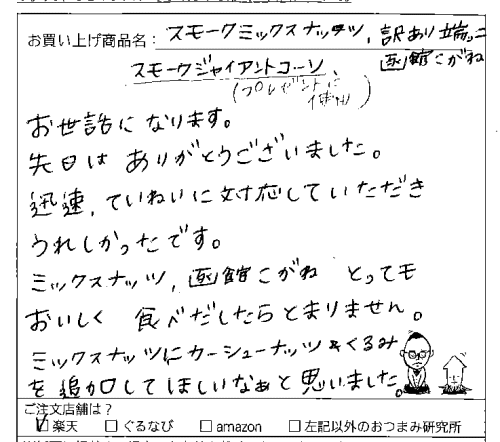 お買い上げ商品名: スモークミックスナッツ, 訳あり端っこ
函館こがね
スモークジャイアントコーン
(プレゼントに
使用)
お世話になります。
先日はありがとうございました。
迅速, ていねいに対応していただき
うれしかったです。
ミックスナッツ, 函館こがね とっても
おいしく 食べだしたらとまりません。
ミックスナッツにカーシューナッツやくるみ
を追加してほしいなぁと思いました。
ご注文店舗は?
☑楽天 □ぐるなび □amazon □左記以外のおつまみ研究所